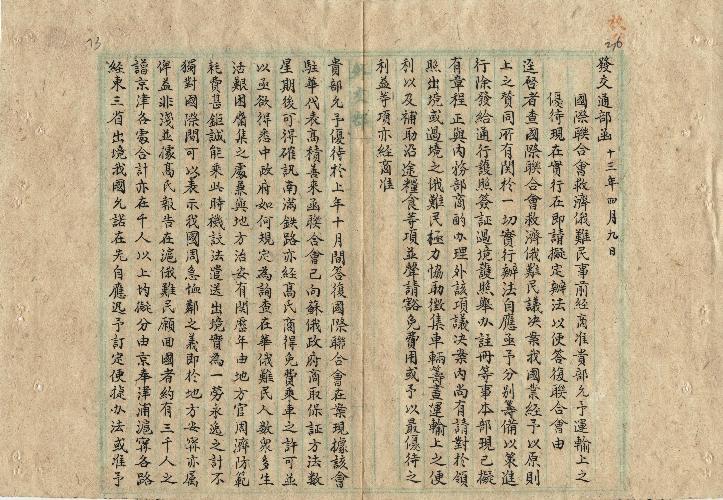 發交通部函 十三年四月九日
國際聯合會救濟俄難民事前經商准貴部允予運輸上之
優待現在實行在即請擬定辦法以便答復聯合會由
逕啓者查國際聯合會救濟俄難民議决案我國業經予以原則
上之贊同所有関於一切實行辦法自應亟予分别籌備以策進
行除發給通行護照簽証過境護照舉办註冊等事本部現已擬
有章程正與内務部商酌办理外該項議决案内尚有請對於領
照出境或過境之俄難民極力協助徵集車輛籌畫運輸上之便
利以及補助沿途糧食等項並聲請豁免費用或予以最優待之
利益等項亦經商准
貴部允予優待於上年十月間答復國際聯合會在案現據該會
駐華代表髙積善來函聯合會已向蘇俄政府商取保証方法数
星期後可得確訊南滿鉄路亦經髙氏商得免費乗車之許可並
以亟欲得悉中政府如何規定為詢查在華俄難民人数衆多生
活艱困麕集之處兼與地方治安有関歷年由地方官周濟防範
耗費甚鉅誠能乗此時機設法遣送出境實為一勞永逸之計不
獨對國際間可以表示我國周急恤鄰之義即於地方安寧亦属
俾益非淺並據髙氏報告在滬俄難民願囬國者約有三千人之
譜京津各處合計亦在千人以上均擬分由京奉津浦滬寧各路
經東三省出境我國允諾在先自應迅予訂定便捷办法或准予
外交部
73
276